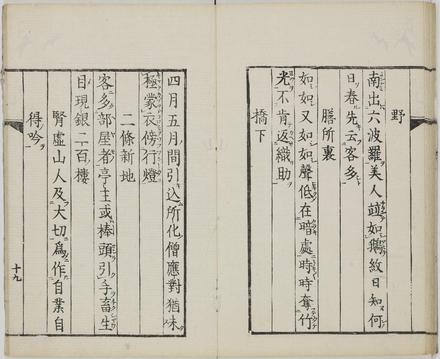 野
南出六波羅美人竝如鵝紋日知何
日春先云客多
膳所裏
如如又如如聲低在暗處時時奪竹
光不肯返織助
橋下
四月五月間引込所化僧應對猶未
極蒙衣傍行燈
二條新地
客多部屋者亭主或棒頭引手畜生
目現銀二百樓
腎虛山人及大切爲作自業自
得吟
十九